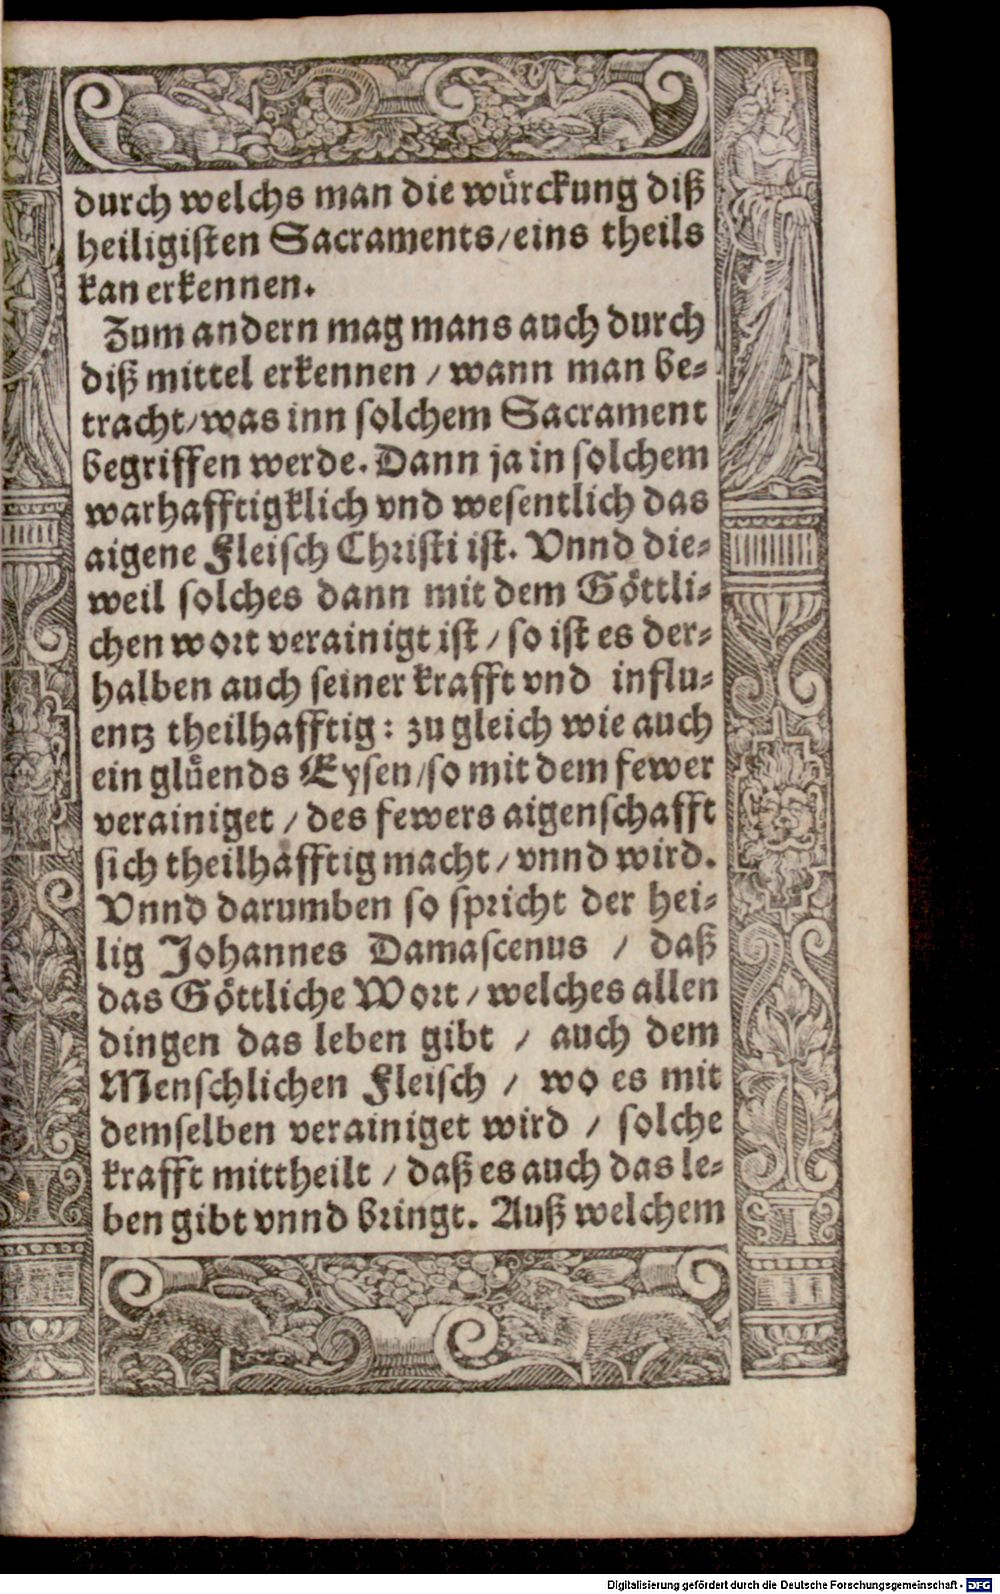 durch welchs man die würckung diß
heiligisten Sacraments/eins theils
kan erkennen.
Zum andern mag mans auch durch
diß mittel erkennen / wann man be-
tracht/was inn solchem Sacrament
begriffen werde. Dann ja in solchem
warhafftigklich vnd wesentlich das
aigene Fleisch Christi ist. Vnnd die-
weil solches dann mit dem Göttli-
chen wort verainigt ist / so ist es der-
halben auch seiner krafft vnd influ-
entz theilhafftig: zu gleich wie auch
ein glüends Eysen/so mit dem fewer
verainiget / des fewers aigenschafft
sich theilhafftig macht/ vnnd wird.
Vnnd darumben so spricht der hei-
lig Johannes Damascenus / daß
das Göttliche Wort/ welches allen
dingen das leben gibt / auch dem
Menschlichen Fleisch / wo es mit
demselben verainiget wird / solche
krafft mittheilt / daß es auch das le-
ben gibt vnnd bringt. Auß welchem
Digitalisierung gefördert durch die Deutsche Forschungsgemeinschaft - DFG